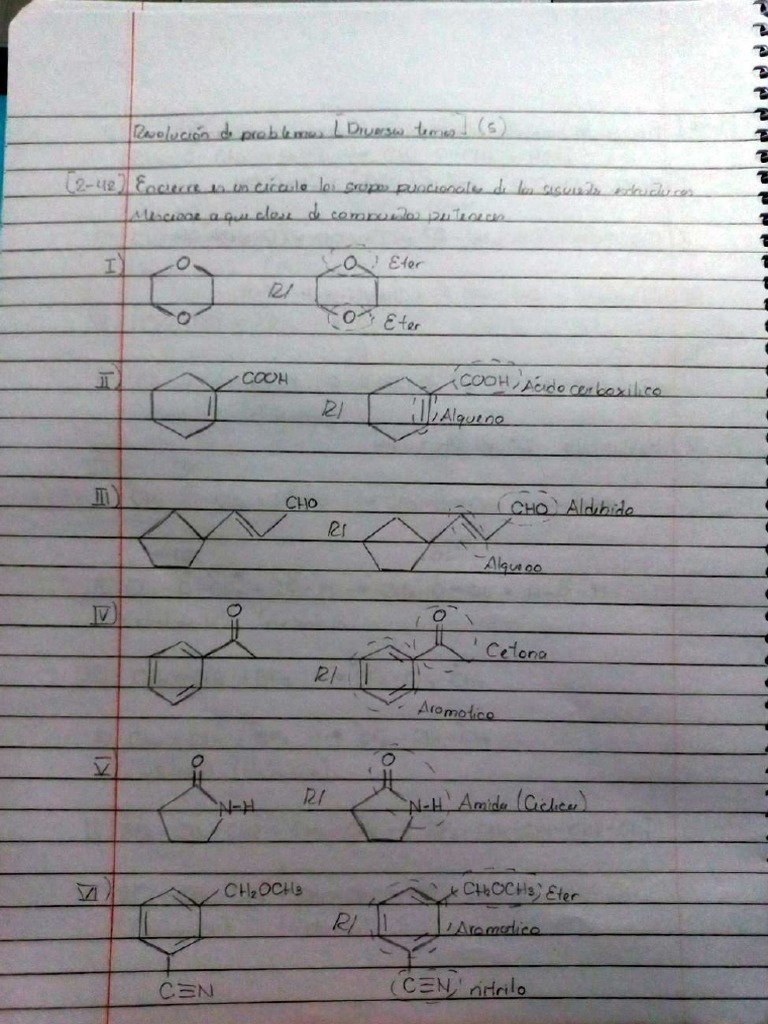 Resolución de problemas [Diversos temas] (5)
[2-42] Encierre en un círculo los grupos funcionales de las siguientes estructuras
Mencione a que clase de compuestos pertenecen
I) O O R/ O Eter
O Eter
II) COOH R/ COOH Ácido carboxilico
Alqueno
III) CHO R/ CHO Aldehido
Alqueno
IV) O R/ O Cetona
Aromatico
V) O N-H R/ O N-H Amida (Ciclica)
VI) CH₂OCH₃ R/ CH₂OCH₃ Eter
Aromatico
C≡N C≡N nitrilo